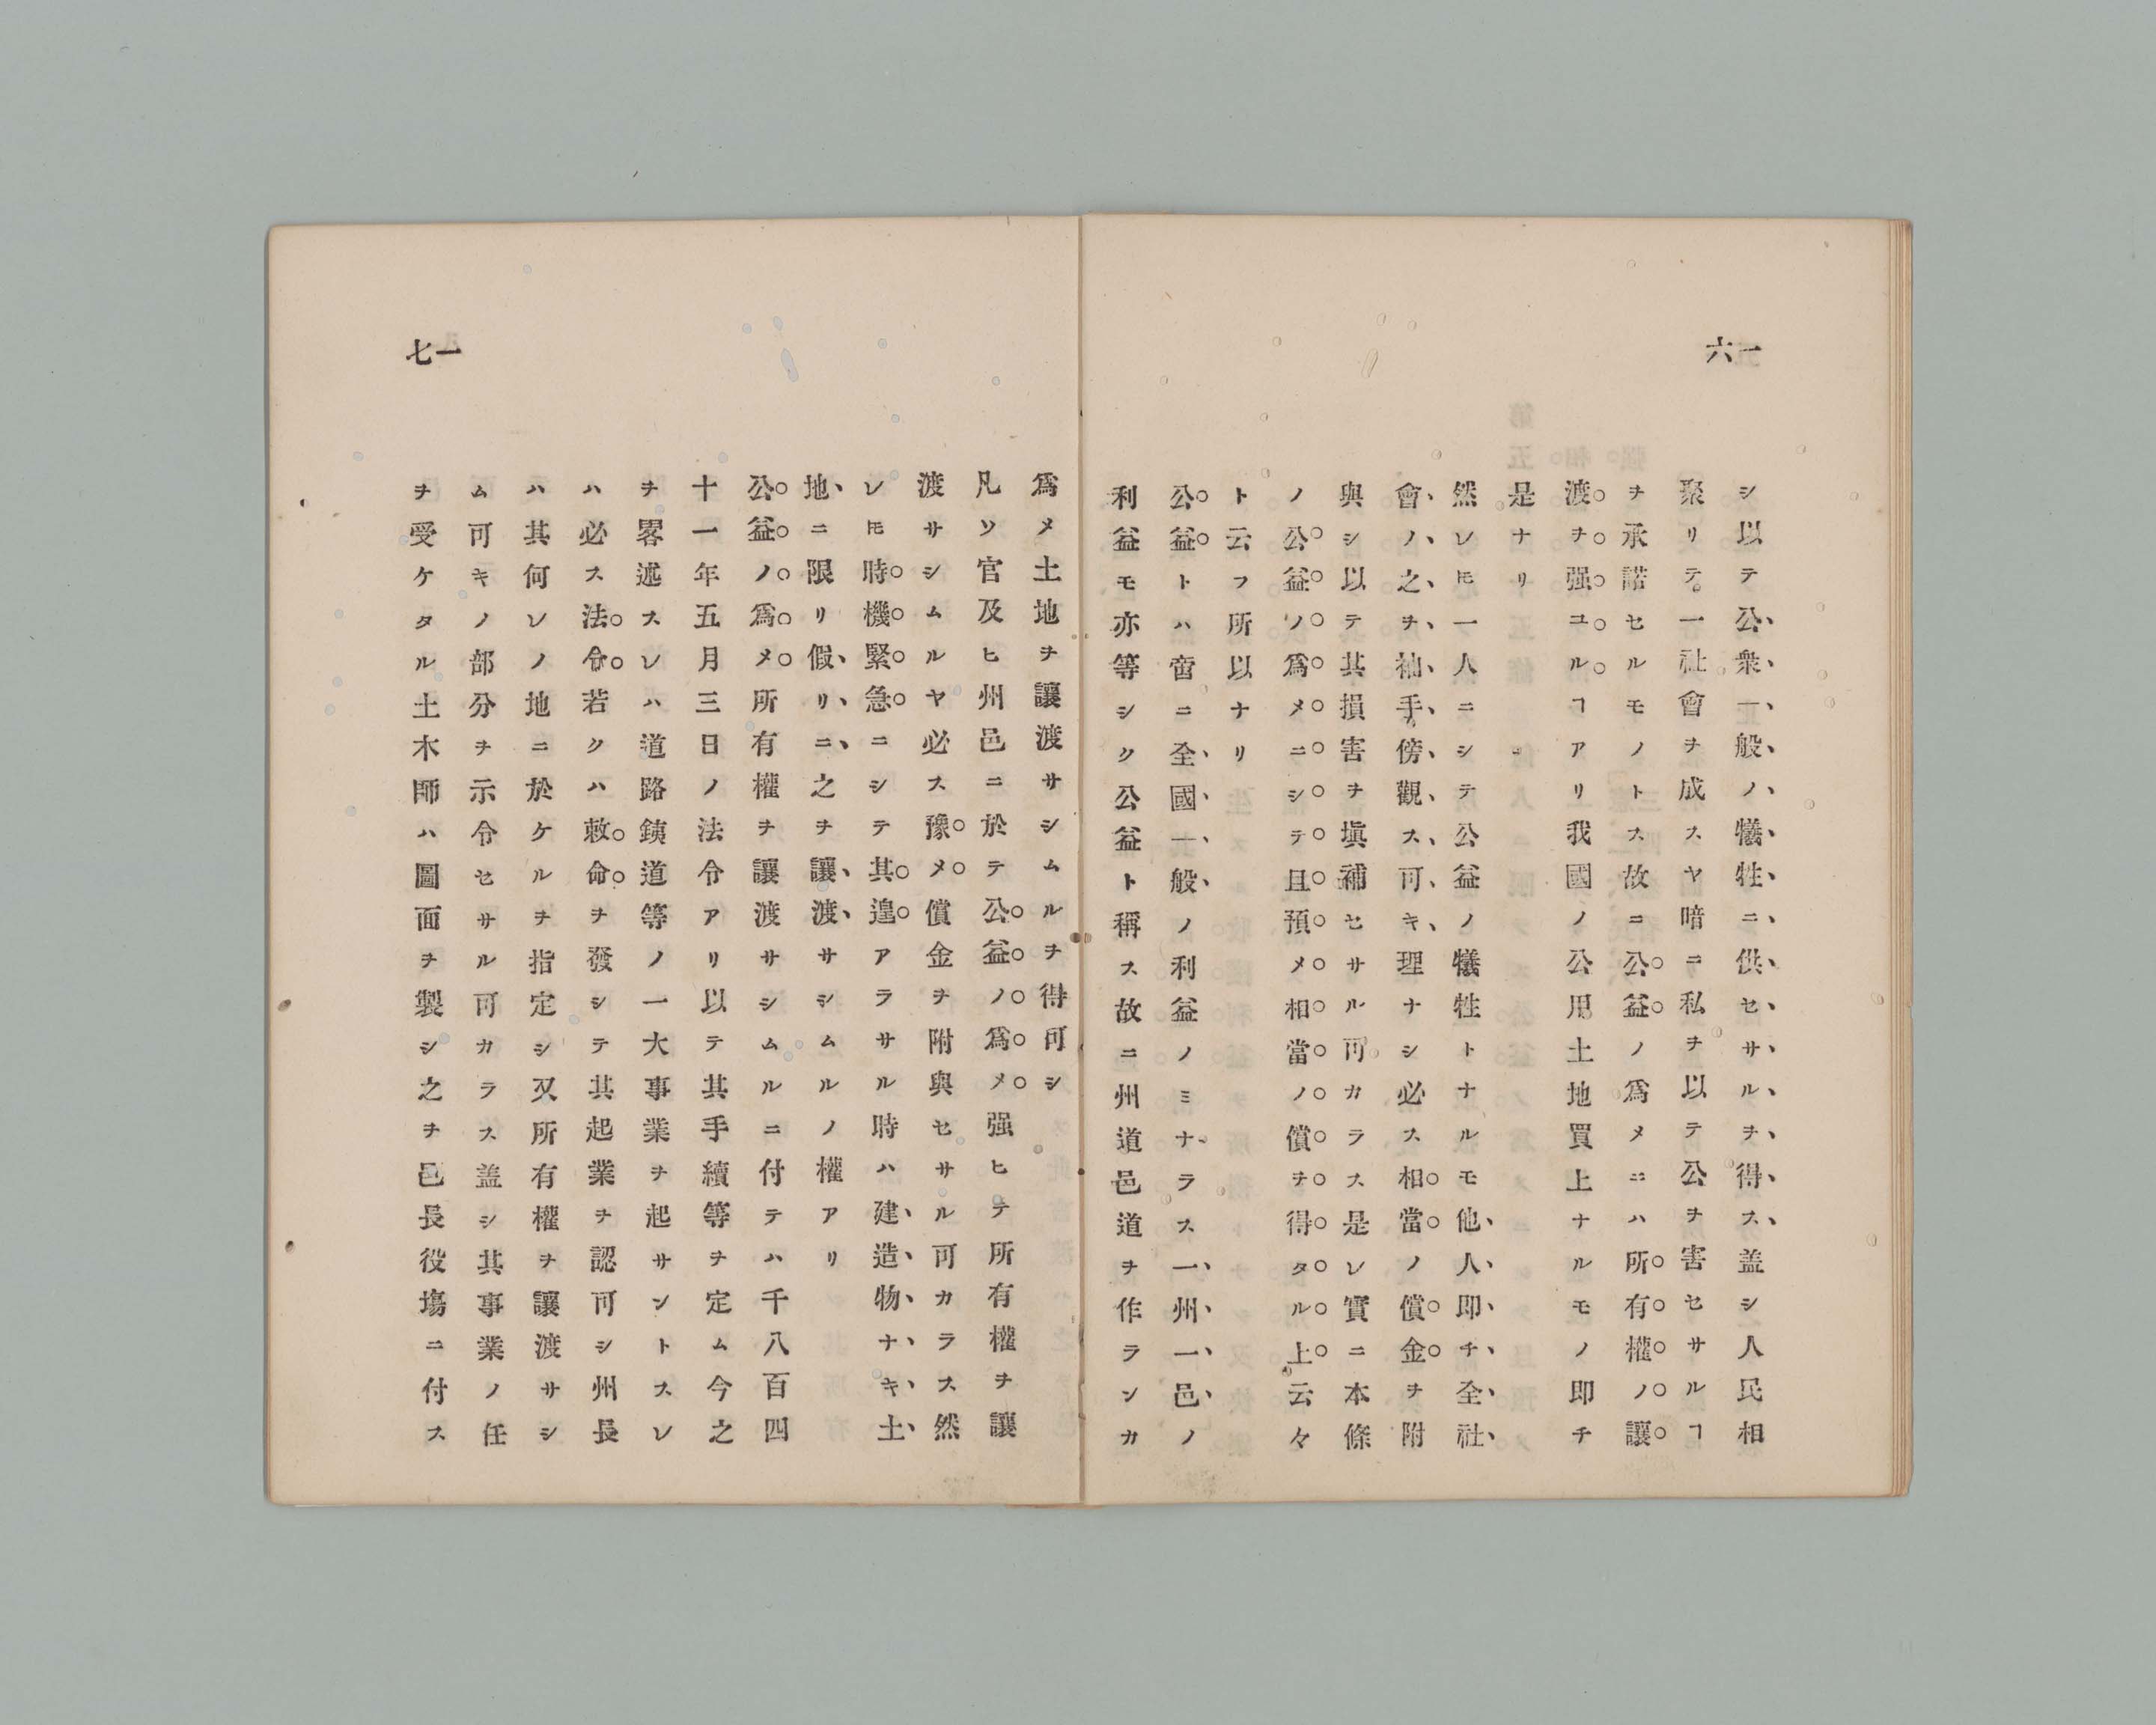 一六
シ以テ公衆一般ノ犠牲ニ供セサルヲ得ス盖シ人民相
聚リテ一社會ヲ成スヤ暗ニ私ヲ以テ公ヲ害セサルヿ
ヲ承諾セルモノトス故ニ公益ノ爲メニハ所有權ノ讓
渡ヲ强ユルヿアリ我國ノ公用土地買上ナルモノ即チ
是ナリ
然レ𪜈一人ニシテ公益ノ犠牲トナルモ他人即チ全社
會ノ之ヲ袖手傍觀ス可キ理ナシ必ス相當ノ償金ヲ附
與シ以テ其損害ヲ塡補セサル可カラス是レ實ニ本條
ノ公益ノ爲メニシテ且預メ相當ノ償ヲ得タル上云々
ト云フ所以ナリ
公益トハ啻ニ全國一般ノ利益ノミナラス一州一邑ノ
利益モ亦等シク公益ト稱ス故ニ州道邑道ヲ作ランカ
一七
爲メ土地ヲ讓渡サシムルヲ得可シ
凡ソ官及ヒ州邑ニ於テ公益ノ爲メ强ヒテ所有權ヲ讓
渡サシムルヤ必ス豫メ償金ヲ附與セサル可カラス然
レ𪜈時機緊急ニシテ其遑アラサル時ハ建造物ナキ土
地ニ限リ假リニ之ヲ讓渡サシムルノ權アリ
公益ノ爲メ所有權ヲ讓渡サシムルニ付テハ千八百四
十一年五月三日ノ法令アリ以テ其手續等ヲ定ム今之
ヲ畧述スレハ道路鐵道等ノ一大事業ヲ起サントスレ
ハ必ス法令若クハ敕命ヲ發シテ其起業ヲ認可シ州長
ハ其何レノ地ニ於ケルヲ指定シ又所有權ヲ讓渡サシ
ム可キノ部分ヲ示令セサル可カラス盖シ其事業ノ任
ヲ受ケタル土木師ハ圖面ヲ製シ之ヲ邑長役塲ニ付ス